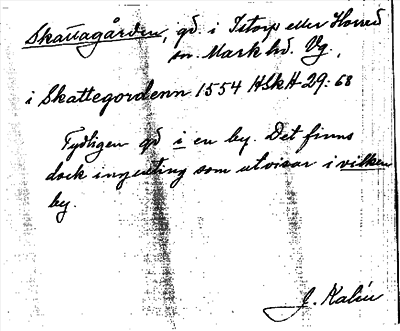 Skattagården, gd. i Istorp eller Horred
sn. Mark hd. Vg.,
i Skattegordenn 1554 HSkH 29: 68
Tydligen gd i en by. Det finns
dock ingenting som utvisar i vilken
by.
J. Kalén